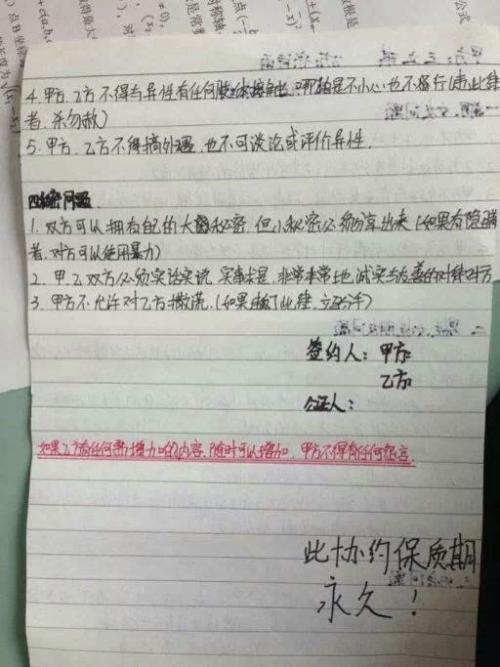 4. 甲方、乙方不得与异性有任何肢体接触,哪怕是不小心也不容行(违此律
者,杀勿赦)
5. 甲方、乙方不得搞外遇,也不可谈论或评价异性.
四.秘密问题
1. 双方可以拥有自己的大秘密,但小秘密必须说出来(如果有隐瞒
者,对方可以使用暴力)
2. 甲.乙双方必须实话实说,实事求是,非常非常地诚实与友善的对待对方
3. 甲方不允许对乙方撒谎.(如果违了此律,立即分手)
签约人: 甲方
乙方
公证人:
如果乙方有任何需要增加的内容,随时可以增加,甲方不得有任何怨言.
此协约保质期
永久!